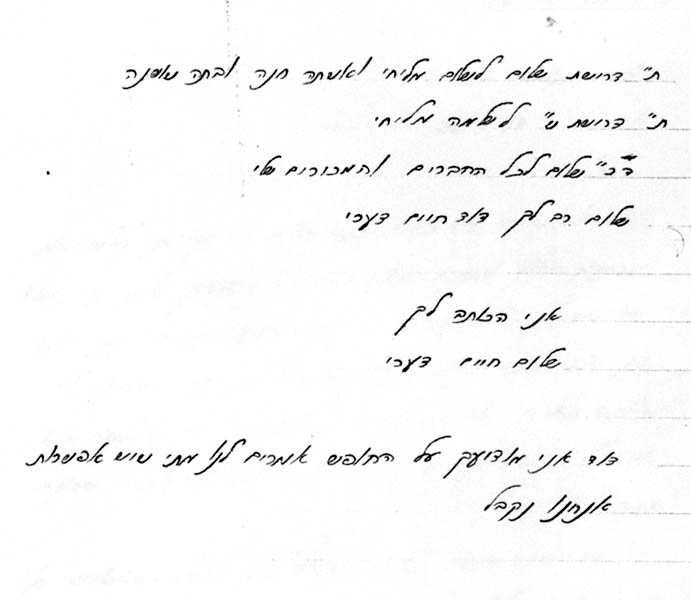 ת" דרישת שלום לשלום מליחי ואשתה חנה ובתה שושנה
ת" דרישת ש" לשלמה מליחי
ד"כ שלום לכל החברים והמכורים שלי
שלום רב לך דוד חיים דערי
אני הכותב לך
שלום חיים דערי
דוד אני מודיעך על החופש אומרים לנו מתי שיש אפשרות
אנחנו נקבל